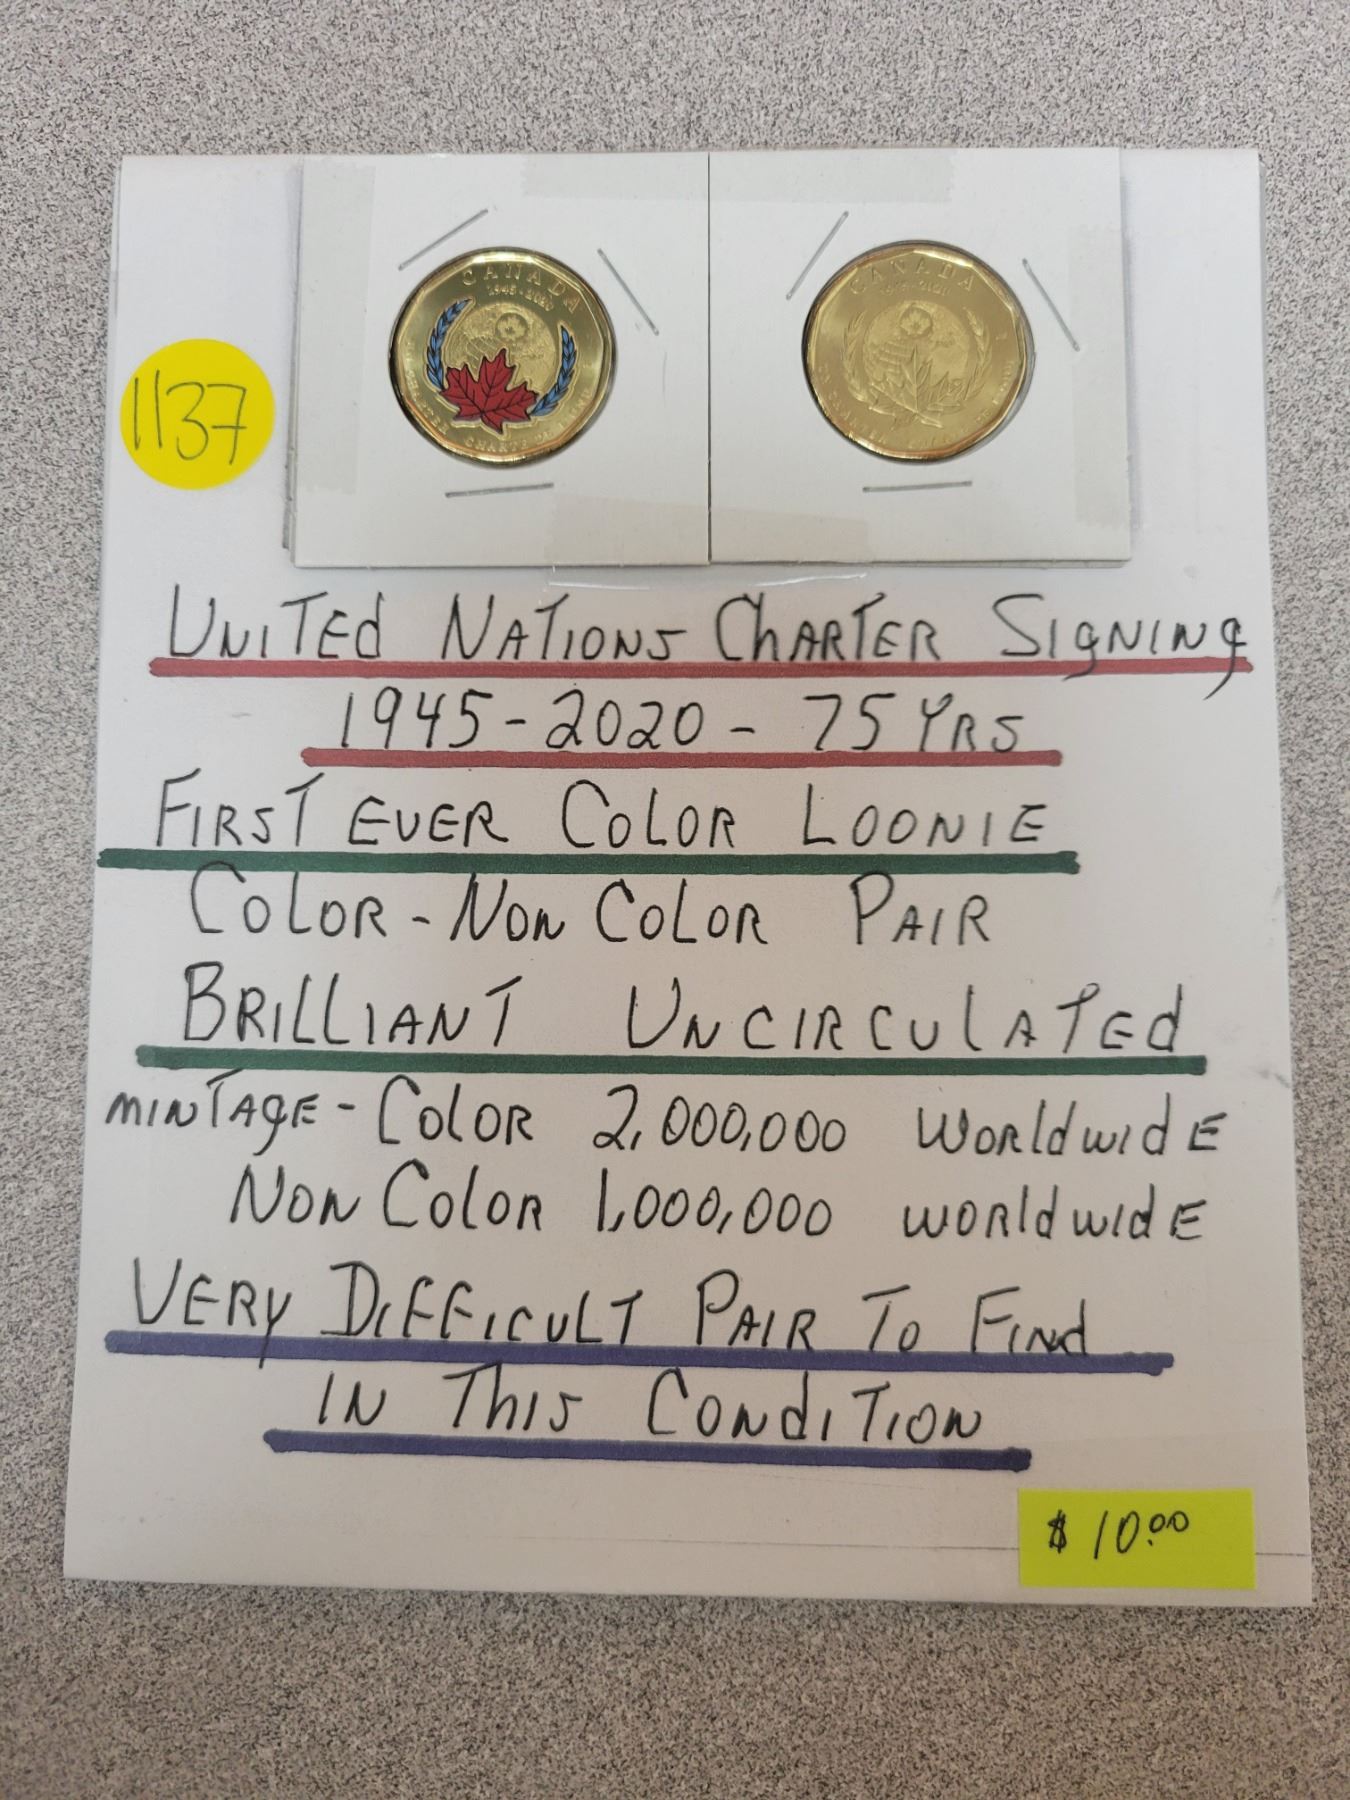 CANADA
1945-2020
CHARTER CHARTE
CANADA
1137
UNITED NATIONS CHARTER SIGNING
1945-2020 - 75 YRS
FIRST EVER COLOR LOONIE
COLOR-NON COLOR PAIR
BRILLIANT UNCIRCULATED
MINTAGE - COLOR 2,000,000 WORLDWIDE
NON COLOR 1,000,000 WORLDWIDE
VERY DIFFICULT PAIR TO FIND
IN THIS CONDITION
$10.00